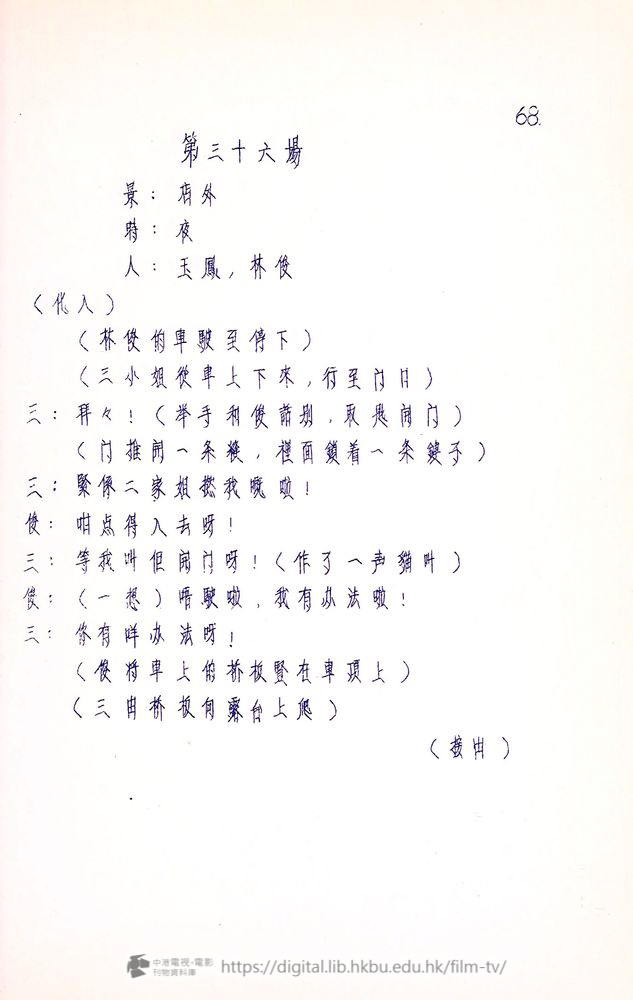 68.
第三十六場
景：店外
時：夜
人：玉鳳，林俊
（化入）
（林俊的車駛至停下）
（三小姐從車上下來，行至门口）
三：拜々！（举手和俊話别，取匙開门）
（门推開一条縫，裡面鎖着一条鍊子）
三：緊係二家姐挖我嘅啦！
俊：咁点得入去呀！
三：等我叫佢開门呀！（作了一声猫叫）
俊：（一想）唔駛啦，我有办法啦！
三：你有咩办法呀！
（俊将車上的桥板豎在車頂上）
（三由桥板向露台上爬）
（接出）
中港電視•電影
刊物資料庫
https://digital.lib.hkbu.edu.hk/film-tv/